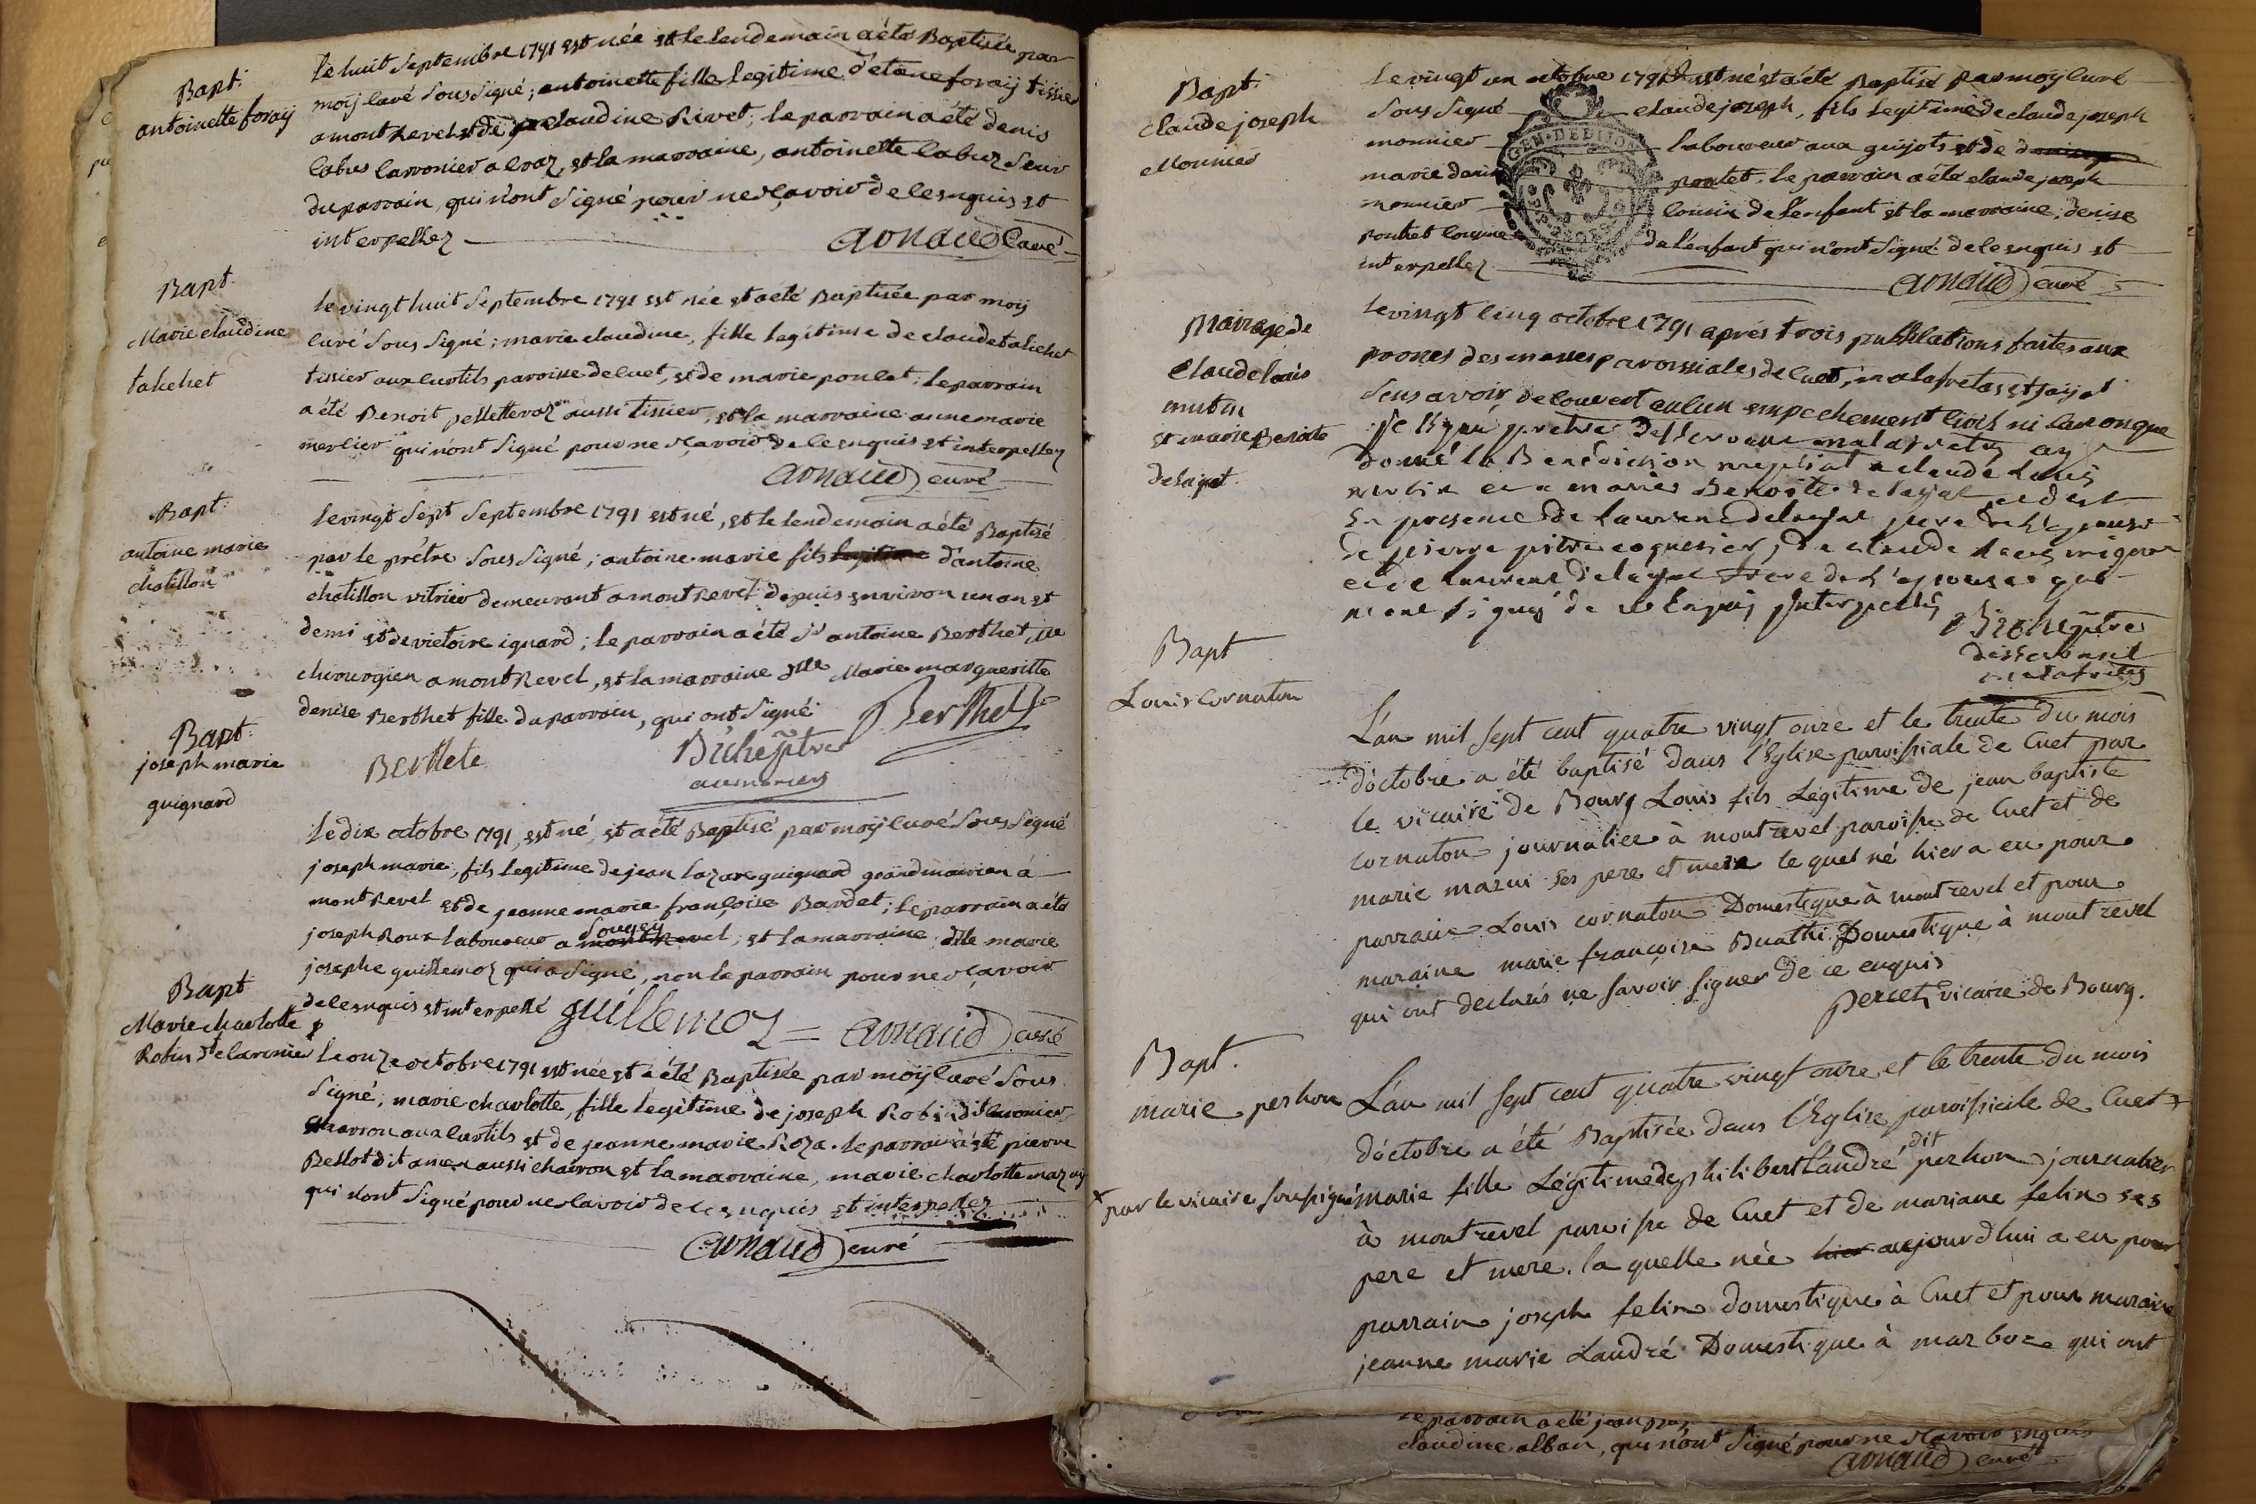 Bapt:
antoinette foraÿ
Le huit Septembre 1791 est née et le lendemain a été Baptisée par
moÿ curé Sous Signé; antoinette fille legitime d'etienne foraÿ tissier
a montrevel et de claudine Rivet; le parrain a été denis
et la marraine, antoinette
du parrain, qui n'ont Signé pour ne sçavoir de ce enquis et
interpellez
arnaud curé
Bapt.
Marie claudine
takehet
le vingt huit Septembre 1791 est née et a été Baptisée par moÿ
curé Sous Signé; marie claudine, fille legitime de claude
tissier aux curtils paroisse de cuet, et de marie poncet; le parrain
a été Benoit aussi tissier, et la marraine anne marie
merlier qui n'ont Signé pour ne sçavoir de ce enquis et interpellez
arnaud curé
Bapt:
antoine marie
chatillon
le vingt Sept Septembre 1791 est né, et le lendemain a été Baptisé
par le prêtre Sous Signé; antoine marie fils legitime d'antoine
chatillon vitrier demeurant a montrevel depuis environ un an et
demi et de victoire ignard; le parrain a été Sr antoine Berthet, me
chirurgien a montrevel, et la marraine Dlle Marie margueritte
denise Berthet fille du parrain, qui ont Signé
Berthete
Bichet ptre
Berthet
Bapt.
joseph marie
guignard
Le dix octobre 1791, est né, et a été Baptisé par moÿ curé Sous Signé
joseph marie, fils legitime de jean lazare guignard à
montrevel et de jeanne marie françoise Bardet; le parrain a été
joseph Roux laboureur a montrevel, et la marraine, dlle marie
Sougey
josephe guillemoz qui a Signé, non le parrain pour ne sçavoir
de ce enquis et interpellé guillemoz = arnaud curé
Bapt
Marie charlotte
Robin
Le onze octobre 1791 est née et a été Baptisée par moÿ curé Sous
Signé, marie charlotte, fille legitime de joseph Robin dit
charron aux curtils et de jeanne marie Roza. le parrain a été pierre
Bellot dit aussi charron et la marraine, marie charlotte
qui n'ont Signé pour ne scavoir de ce enquis et interpellez
arnaud curé
Bapt:
Claude joseph
Monnier
Le vingt un octobre 1791 est né et a été Baptisé par moÿ curé
Sous Signé claude joseph, fils legitime de claude joseph
monnier laboureur aux guijots et de denise
marie denise pontet. le parrain a été claude joseph
monnier cousin de l'enfant et la marraine, denise
pontet cousine de l'enfant qui n'ont Signé de ce enquis et
interpellez
arnaud curé
Mairage de
Claude louis
mutin
et marie Benoite
delayat
Le vingt cinq octobre 1791 après trois publications faites aux
prones des messes paroissiales de cuet, malafretas et
Sans avoir decouvert aucun empechement civil ni canonique
je Sousigné pretre desservant malafretas ay
donné la Benediction nuptial a claude Louis
mutin et a marie Benoite delayat
En presence de Laurent delayat pere de l'epouse
de pierre pitre de claude
et de Laurent delayat frere de l'epouse qui
n'ont Signés de ce Enquis Interpellés
Bichet ptre
desservant
malafretas
Bapt
Louis Cornaton
L'an mil sept cent quatre vingt onze et le trente du mois
d'octobre a été baptisé dans l'Eglise paroissiale de Cuet par
le vicaire de Bourg Louis fils Légitime de jean baptiste
cornaton journalier à montrevel paroisse de Cuet et de
marie mazui ses pere et mere le quel né hier a eu pour
parrain Louis cornaton Domestique à montrevel et pour
maraine marie françoise Buathi Domestique à montrevel
qui ont declarés ne savoir signer de ce enquis
Percet, vicaire de Bourg.
Bapt.
marie perhon
L'an mil sept cent quatre vingt onze et le trente du mois
d'octobre a été Baptisée dans l'Eglise paroissiale de Cuet +
+ par le vicaire soussigné marie fille Légitime de philibert Landré dit perhon journalier
à montrevel paroisse de Cuet et de mariane felix ses
pere et mere. la quelle née hier aujourd'hui a eu pour
parrain joseph felix domestique à Cuet et pour maraine
jeanne marie Landré Domestique à marboz qui ont
le parrain a été jean
claudine alban, qui n'ont Signé pour ne sçavoir enquis
arnaud curé